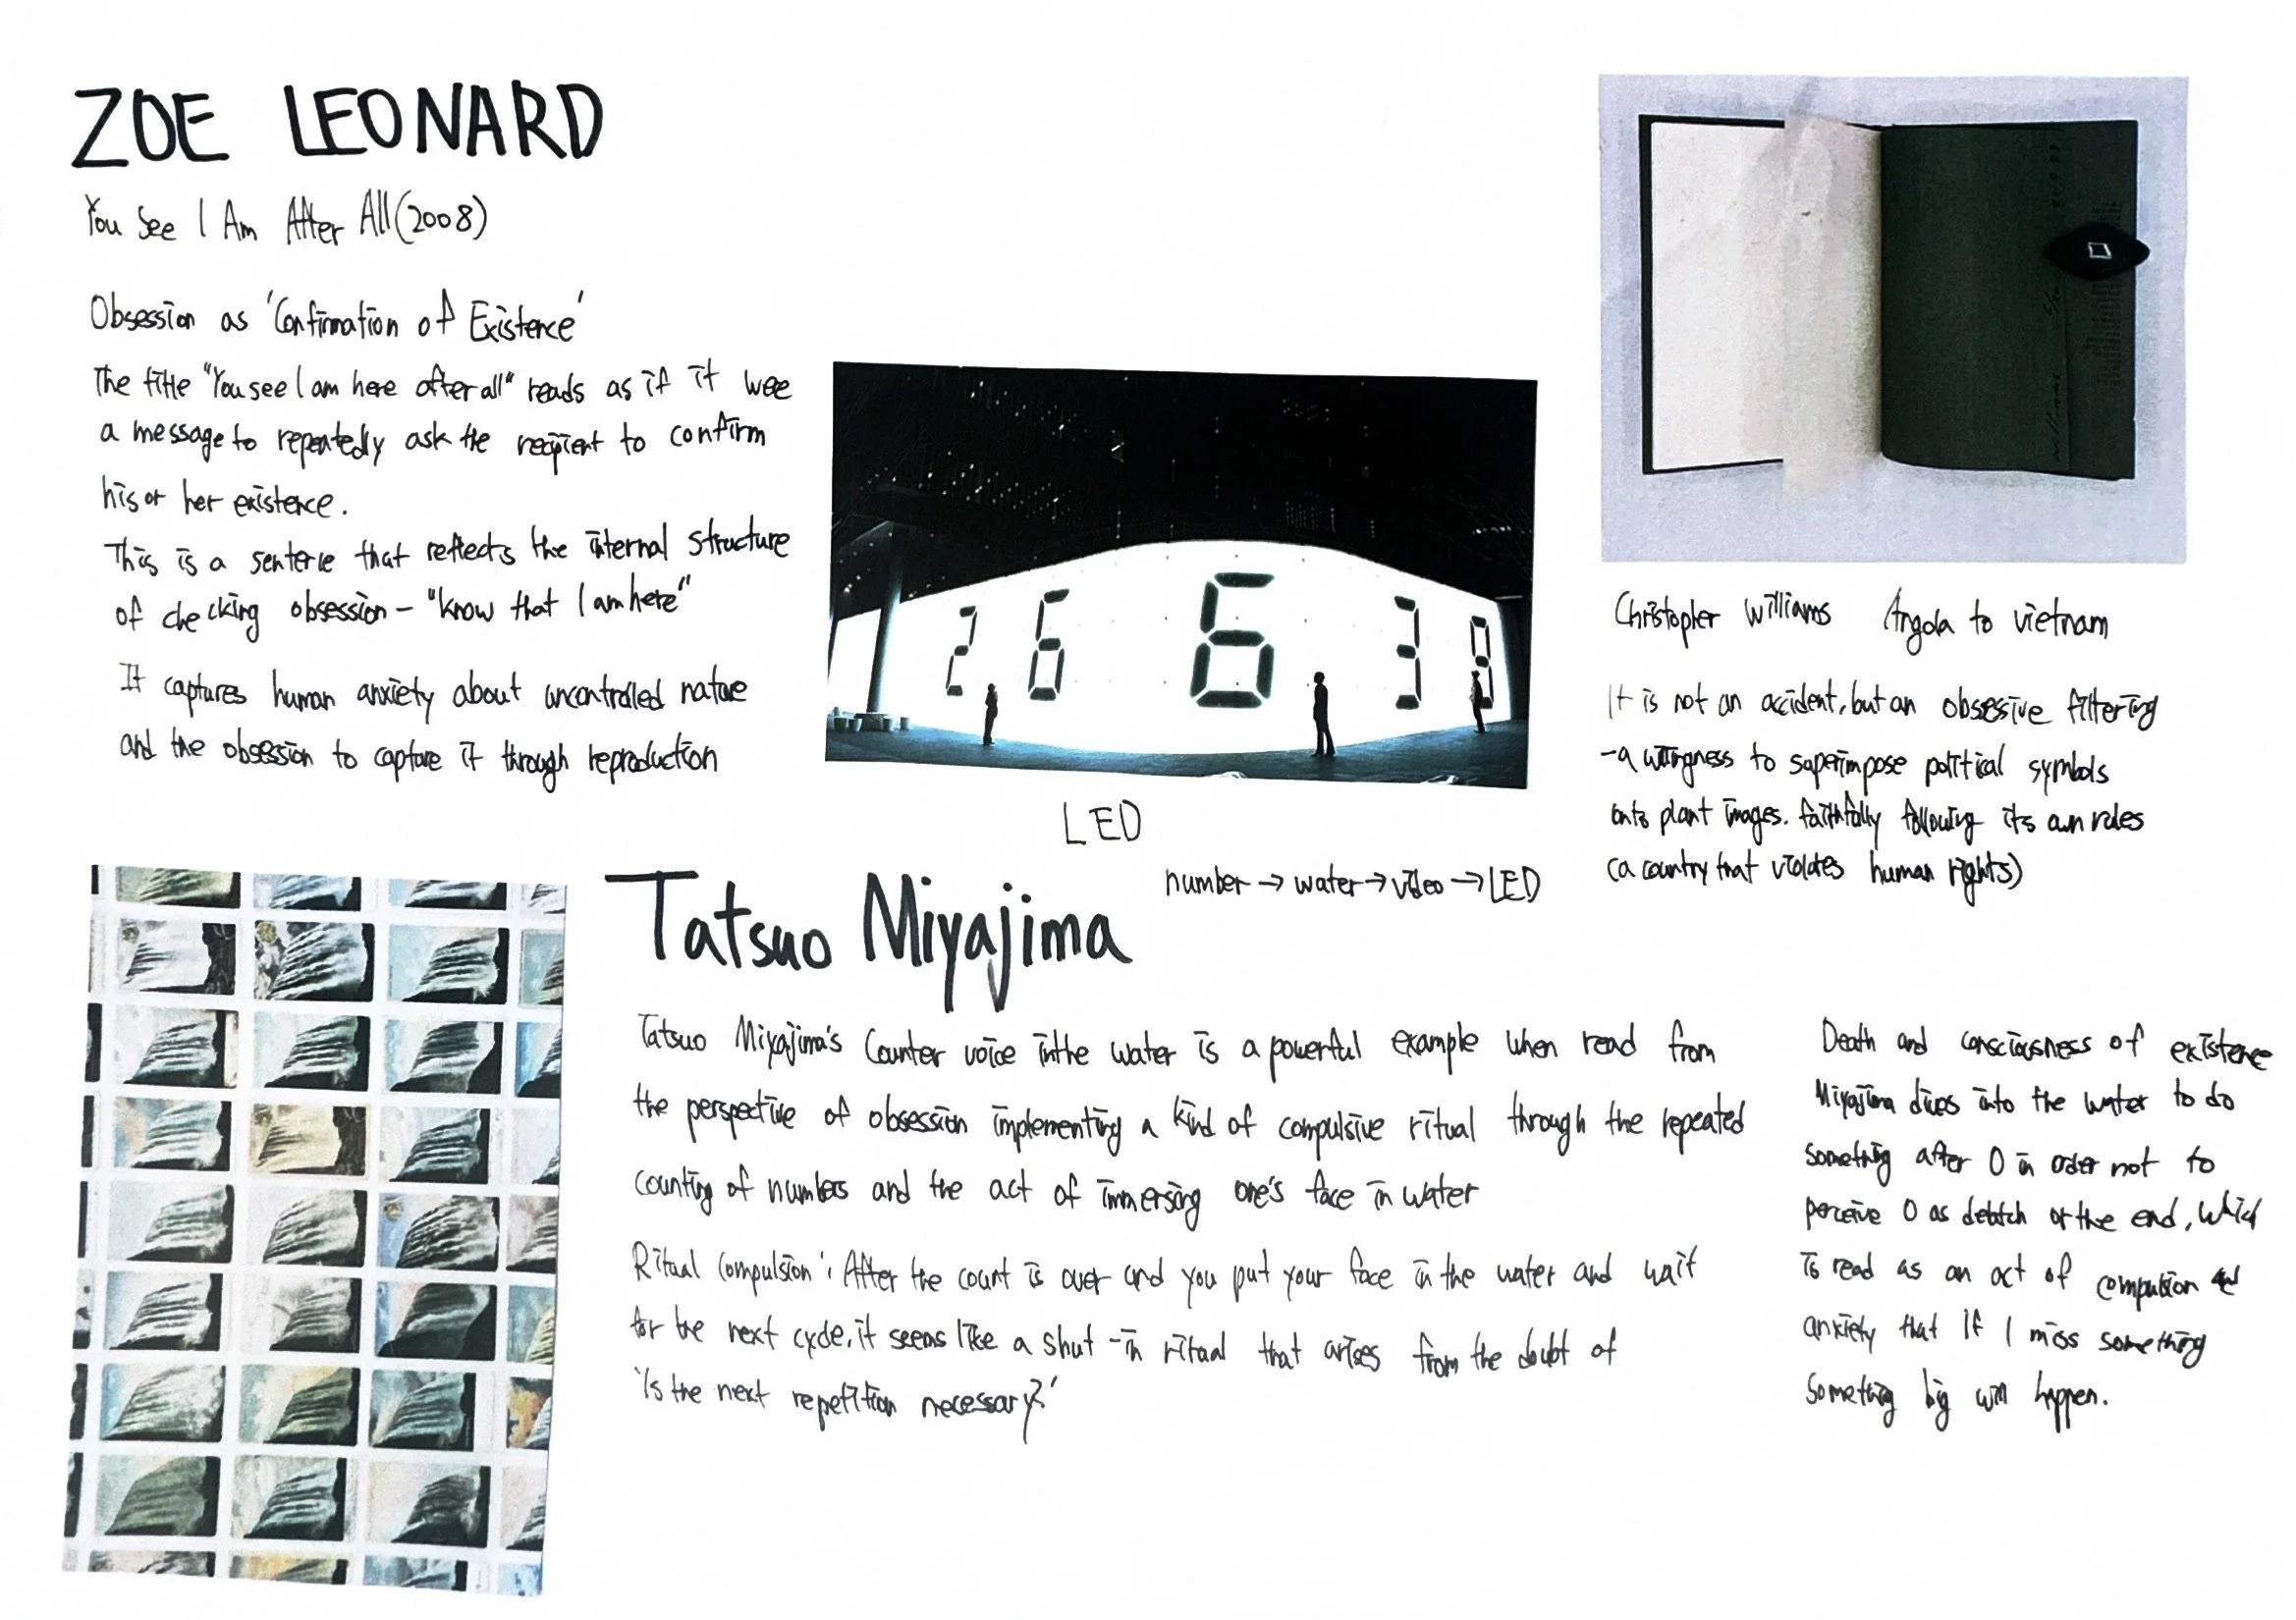 ZOE LEONARD
You See I Am After All (2008)
Obsession as 'Confirmation of Existence'
The title "You see I am here after all" reads as if it wee
a message to repeatedly ask the recipient to confirm
his or her existence.
This is a sentence that reflects the internal structure
of checking obsession - "know that I am here"
It captures human anxiety about uncontrolled nature
and the obsession to capture it through reproduction
2 6 6 3 8
LED
number → water → video → LED
Christopher Williams Angola to Vietnam
It is not an accident, but an obsessive filtering
- a willingness to superimpose political symbols
onto plant images. faithfully following its own rules
(a country that violates human rights)
Tatsuo Miyajima
Tatsuo Miyajima's Counter voice in the water is a powerful example when read from
the perspective of obsession implementing a kind of compulsive ritual through the repeated
counting of numbers and the act of immersing one's face in water
Ritual Compulsion': After the count is over and you put your face in the water and wait
for the next cycle, it seems like a shut-in ritual that arises from the doubt of
'Is the next repetition necessary?'
Death and consciousness of existence
Miyajima dives into the water to do
something after 0 in order not to
perceive 0 as debtch or the end, which
is read as an act of compulsion and
anxiety that if I miss something
something big will happen.